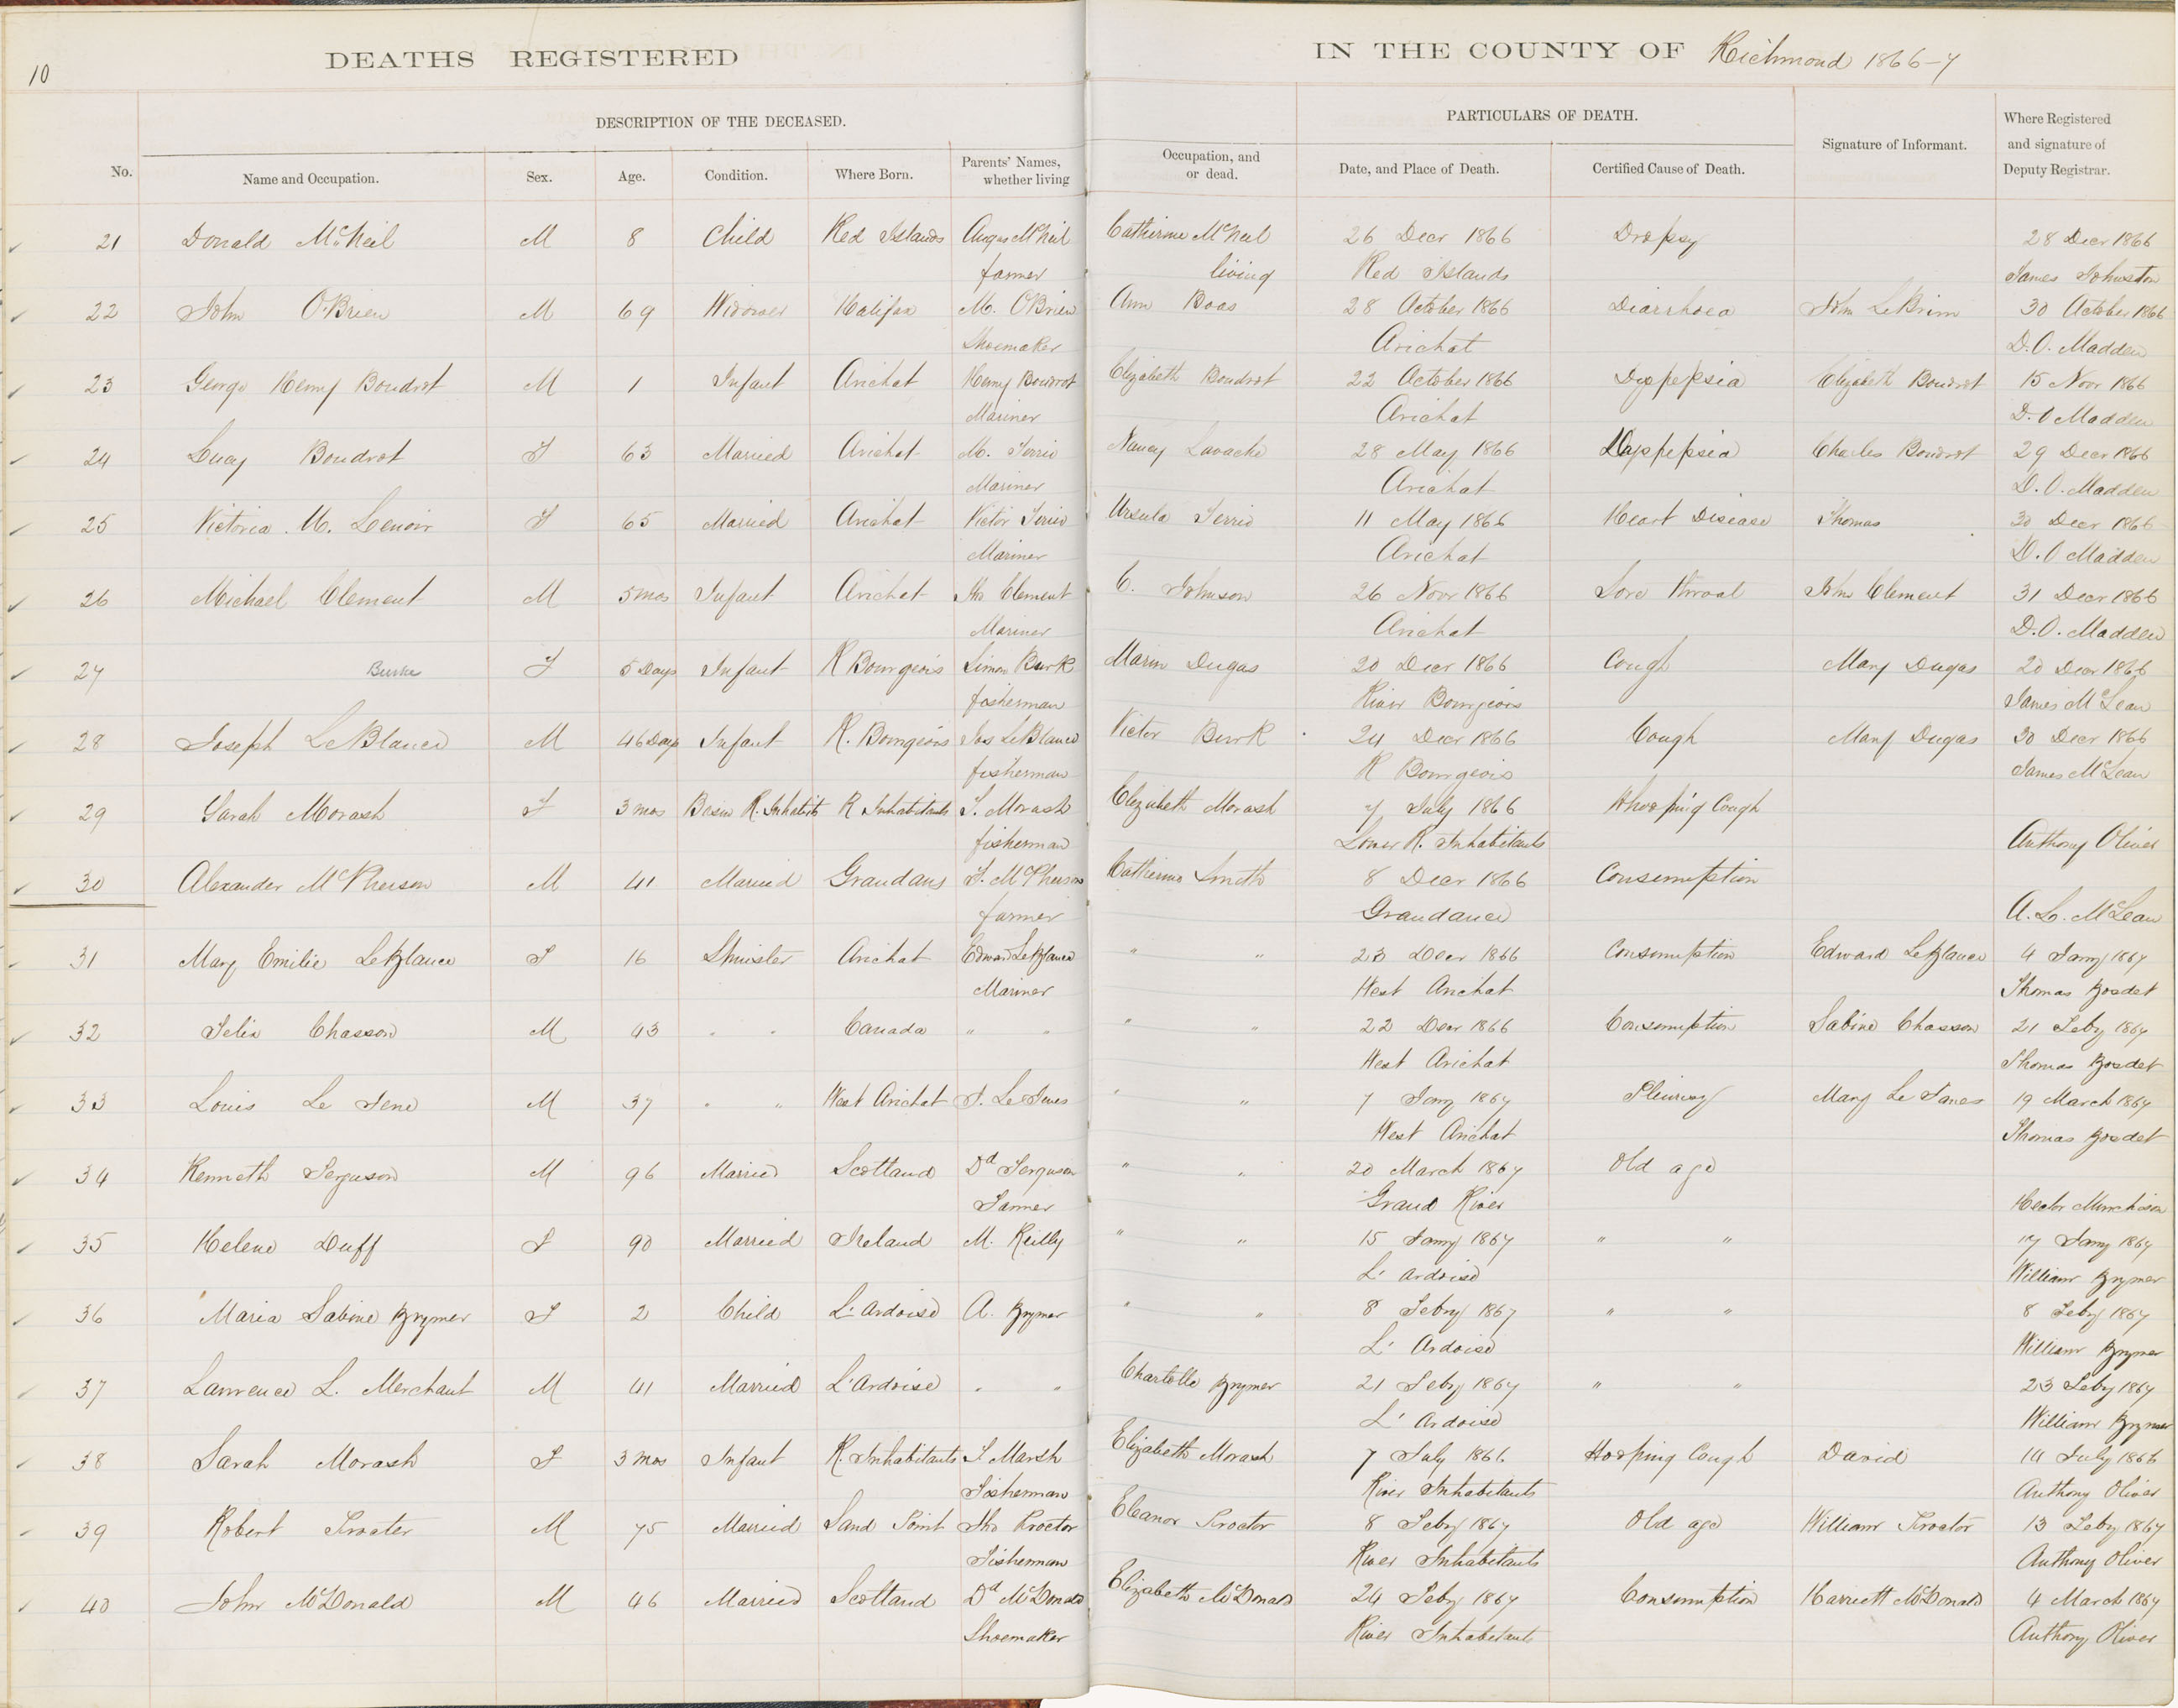 10
DEATHS REGISTERED IN THE COUNTY OF Richmond 1866-7
DESCRIPTION OF THE DECEASED. PARTICULARS OF DEATH.
No. Name and Occupation. Sex. Age. Condition. Where Born. Parents' Names, whether living Occupation, and or dead. Date, and Place of Death. Certified Cause of Death. Signature of Informant. Where Registered and signature of Deputy Registrar.
21 Donald McNeil M 8 Child Red Islands Angus McNeil Catherine McNeil 26 Decr 1866 Dropsy 28 Decr 1866
farmer living Red Islands James Johnston
22 John O'Brien M 69 Widower Halifax M. OBrien Ann Boas 28 October 1866 Diarrhoea John LeBrim 30 October 1866
Shoemaker Arichat D.O. Madden
23 George Henry Boudrot M 1 Infant Arichat Henry Boudrot Elizabeth Boudrot 22 October 1866 Dyspepsia Elizabeth Boudrot 15 Novr 1866
Mariner Arichat D.O Madden
24 Lucy Boudrot F 63 Married Arichat M. Ferrio Nancy Lavache 28 May 1866 Dyspepsia Charles Boudrot 29 Decr 1866
Mariner Arichat D.O. Madden
25 Victoria M. Lenoir F 65 Married Arichat Victor Ferrio Ursula Ferrio 11 May 1866 Heart Disease Thomas 30 Decr 1866
Mariner Arichat D.O Madden
26 Michael Clement M 5 mos Infant Arichat Jno Clement C. Johnson 26 Novr 1866 Sore throat John Clement 31 Decr 1866
Mariner Arichat D.O. Madden
27 Burke F 5 Days Infant R Bourgeois Simon Burk Marin Dugas 20 Decr 1866 Cough Mary Dugas 20 Decr 1866
fisherman River Bourgeois James McLean
28 Joseph LeBlance M 46 Days Infant R. Bourgeois Jos LeBlance Victor Burk 24 Decr 1866 Cough Mary Dugas 30 Decr 1866
fisherman R Bourgeois James McLean
29 Sarah Morash F 3 mos Basin R. Inhabits R Inhabitants J. Morash Elizabeth Morash 7 July 1866 Whooping Cough
fisherman Lower R. Inhabitants Anthony Oliver
30 Alexander McPherson M 41 Married Grandans J. McPherson Catherine Smith 8 Decr 1866 Consumption
farmer Grandance A. L. McLean
31 Mary Emilie LeBlance F 16 Spinster Arichat Edward LeBlance " " 23 Decr 1866 Consumption Edward LeBlance 4 Jany 1867
Mariner West Arichat Thomas Bosdet
32 Felix Chasson M 43 " " Canada " " " " 22 Decr 1866 Consumption Sabine Chasson 21 Feby 1867
West Arichat Thomas Bosdet
33 Louis Le Jene M 37 " " West Arichat J. Le Jenes " " 7 Jany 1867 Pleurisy Mary Le Janes 19 March 1867
West Arichat Thomas Bosdet
34 Kenneth Ferguson M 96 Married Scotland Dd Ferguson " " 20 March 1867 Old age
Farmer Grand River Hector Murchison
35 Helene Duff F 90 Married Ireland M. Reilly " " 15 Jany 1867 " " 17 Jany 1867
L' Ardoise William Brymer
36 Maria Sabine Brymer F 2 Child L'Ardoise A. Brymer " " 8 Febry 1867 " " 8 Feby 1867
L' Ardoise William Brymer
37 Lawrence L. Merchant M 41 Married L'Ardoise " " Chartotte Brymer 21 Feby 1867 " " 23 Feby 1867
L' Ardoise William Brymer
38 Sarah Morash F 3 mos Infant R. Inhabitants J Marsh Elizabeth Morash 7 July 1866 Hooping Cough David 14 July 1866
Fisherman River Inhabitants Anthony Oliver
39 Robert Procter M 75 Married Sand Point Jno Proctor Eleanor Proctor 8 Feby 1867 Old age William Proctor 13 Feby 1867
Fisherman River Inhabitants Anthony Oliver
40 John McDonald M 46 Married Scotland Dd McDonald Elizabeth McDonald 24 Feby 1867 Consumption Harriett McDonald 4 March 1867
Shoemaker River Inhabitants Anthony Oliver